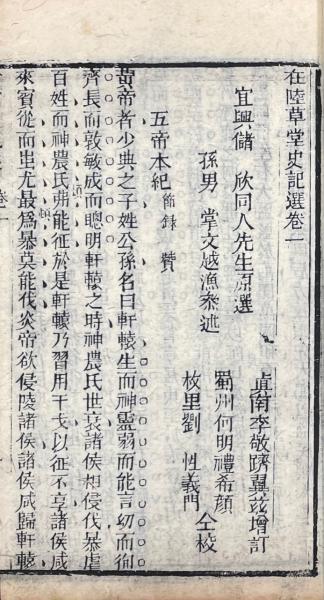 在陸草堂史記選卷一
宜興儲 欣同人先生原選
孫男 掌文越漁泰述
滇南李敬躋翼茲增訂
蜀州何明禮希顏
枚里劉 性義門 仝校
五帝本紀 節錄 贊
黃帝者少典之子姓公孫名曰軒轅生而神靈弱而能言幼而徇
齊長而敦敏成而聰明軒轅之時神農氏世衰諸侯相侵伐暴虐
百姓而神農氏弗能征於是軒轅乃習用干戈以征不享諸侯咸
來賓從而蚩尤最爲暴莫能伐炎帝欲侵陵諸侯諸侯咸歸軒轅